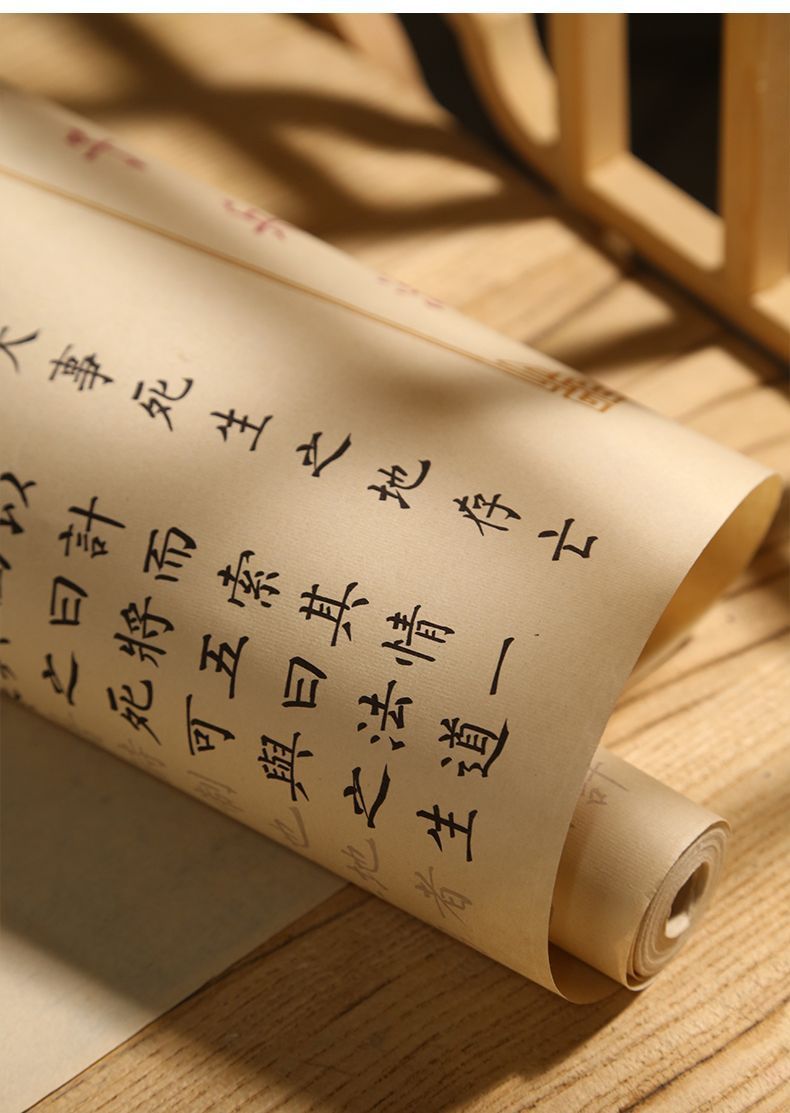 大事死生之地存亡
以計而索其情一
曰將五曰法道
之死可與之生
時制也地者